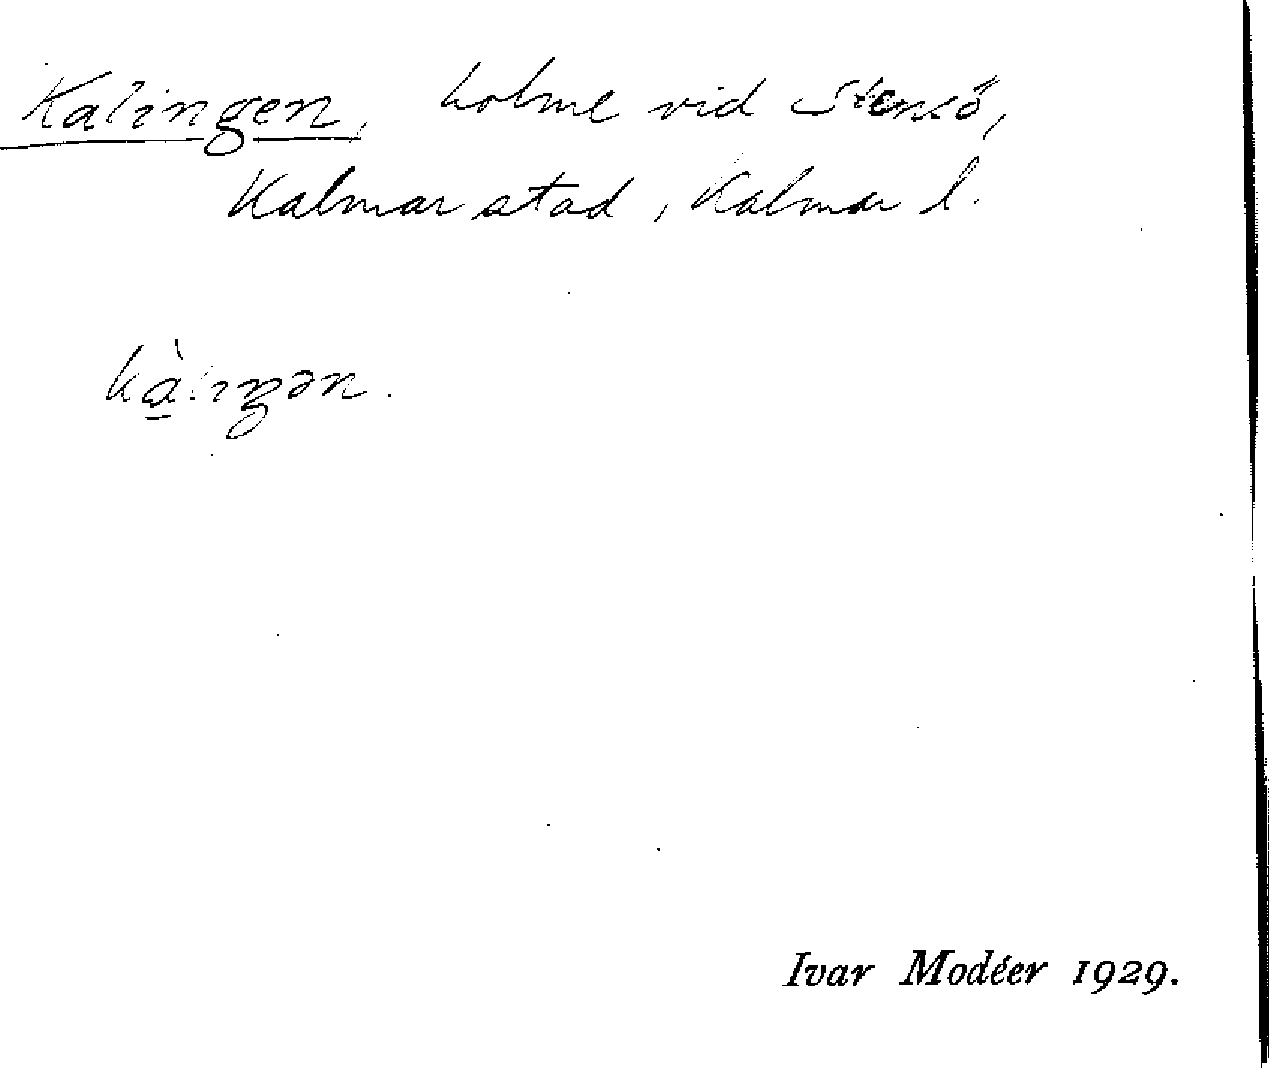 Kalingen, holme vid Stensö,
Kalmar stad, Kalmar l.
kàlıŋən.
Ivar Modéer 1929.